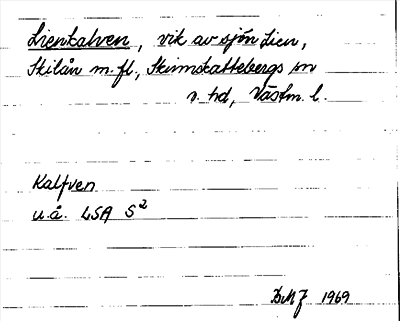 Lienkalven, vik av sjön Lien,
Skilån m. fl., Skinnskattebergs sn
v. hd, Västm. l.
Kalfven
u.å. LSA S²
DMJ 1969